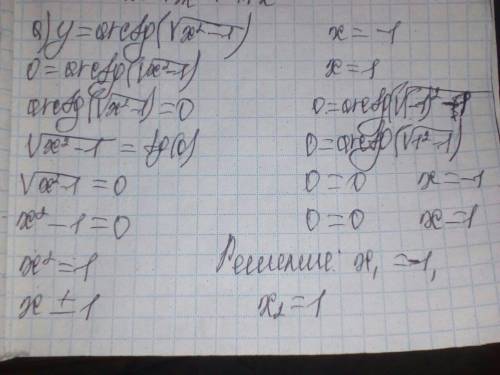 a) y = arctg(√x²-1)
0 = arctg(√x²-1)
arctg(√x²-1) = 0
√x²-1 = tg(0)
√x²-1 = 0
x² - 1 = 0
x² = 1
x ± 1
x = -1
x = 1
0 = arctg(√(-1)² - 1)
0 = arctg(√1²-1)
0 = 0 x = -1
0 = 0 x = 1
Решение: x₁ = -1,
x₂ = 1